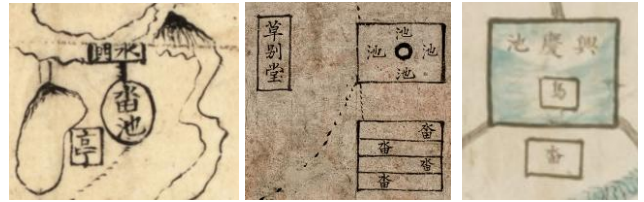 水門
畓池
亭
草別堂
池
池
池
池
畓
畓
畓
畓
興慶池
馬
畓